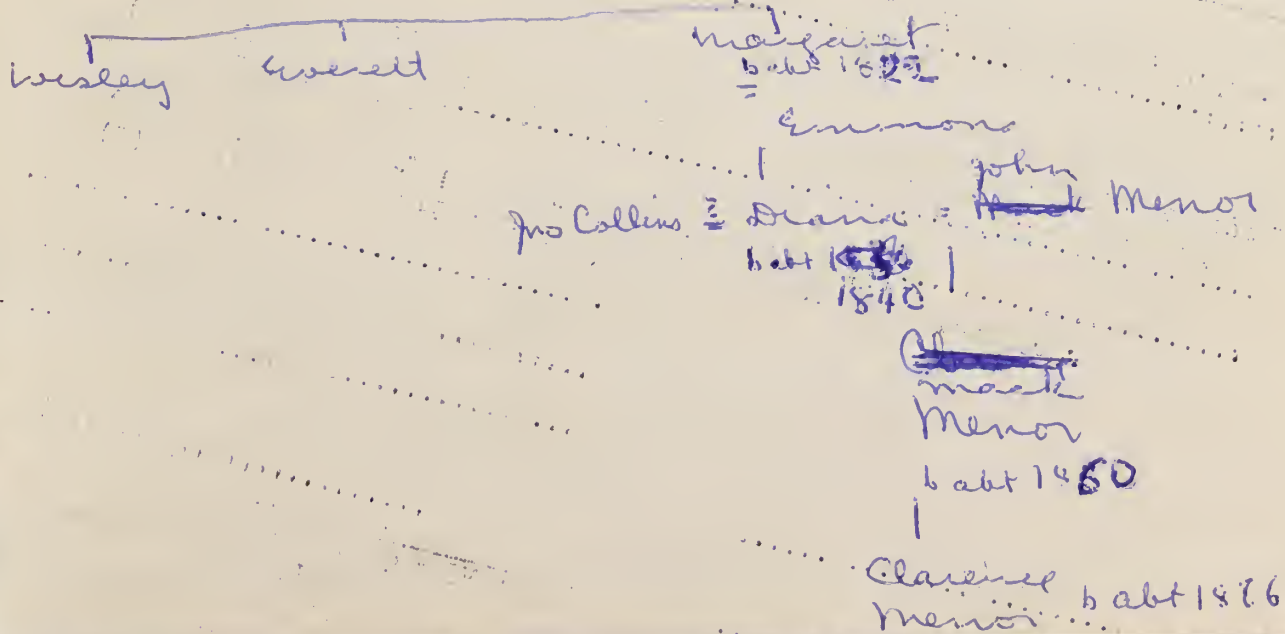 Wesley Everett Margaret
b abt 18
Emmons
Jno Collins = Diana = John Menor
b abt
1840
Mack
Menor
b abt 1860
Clarence b abt 1886
Menor